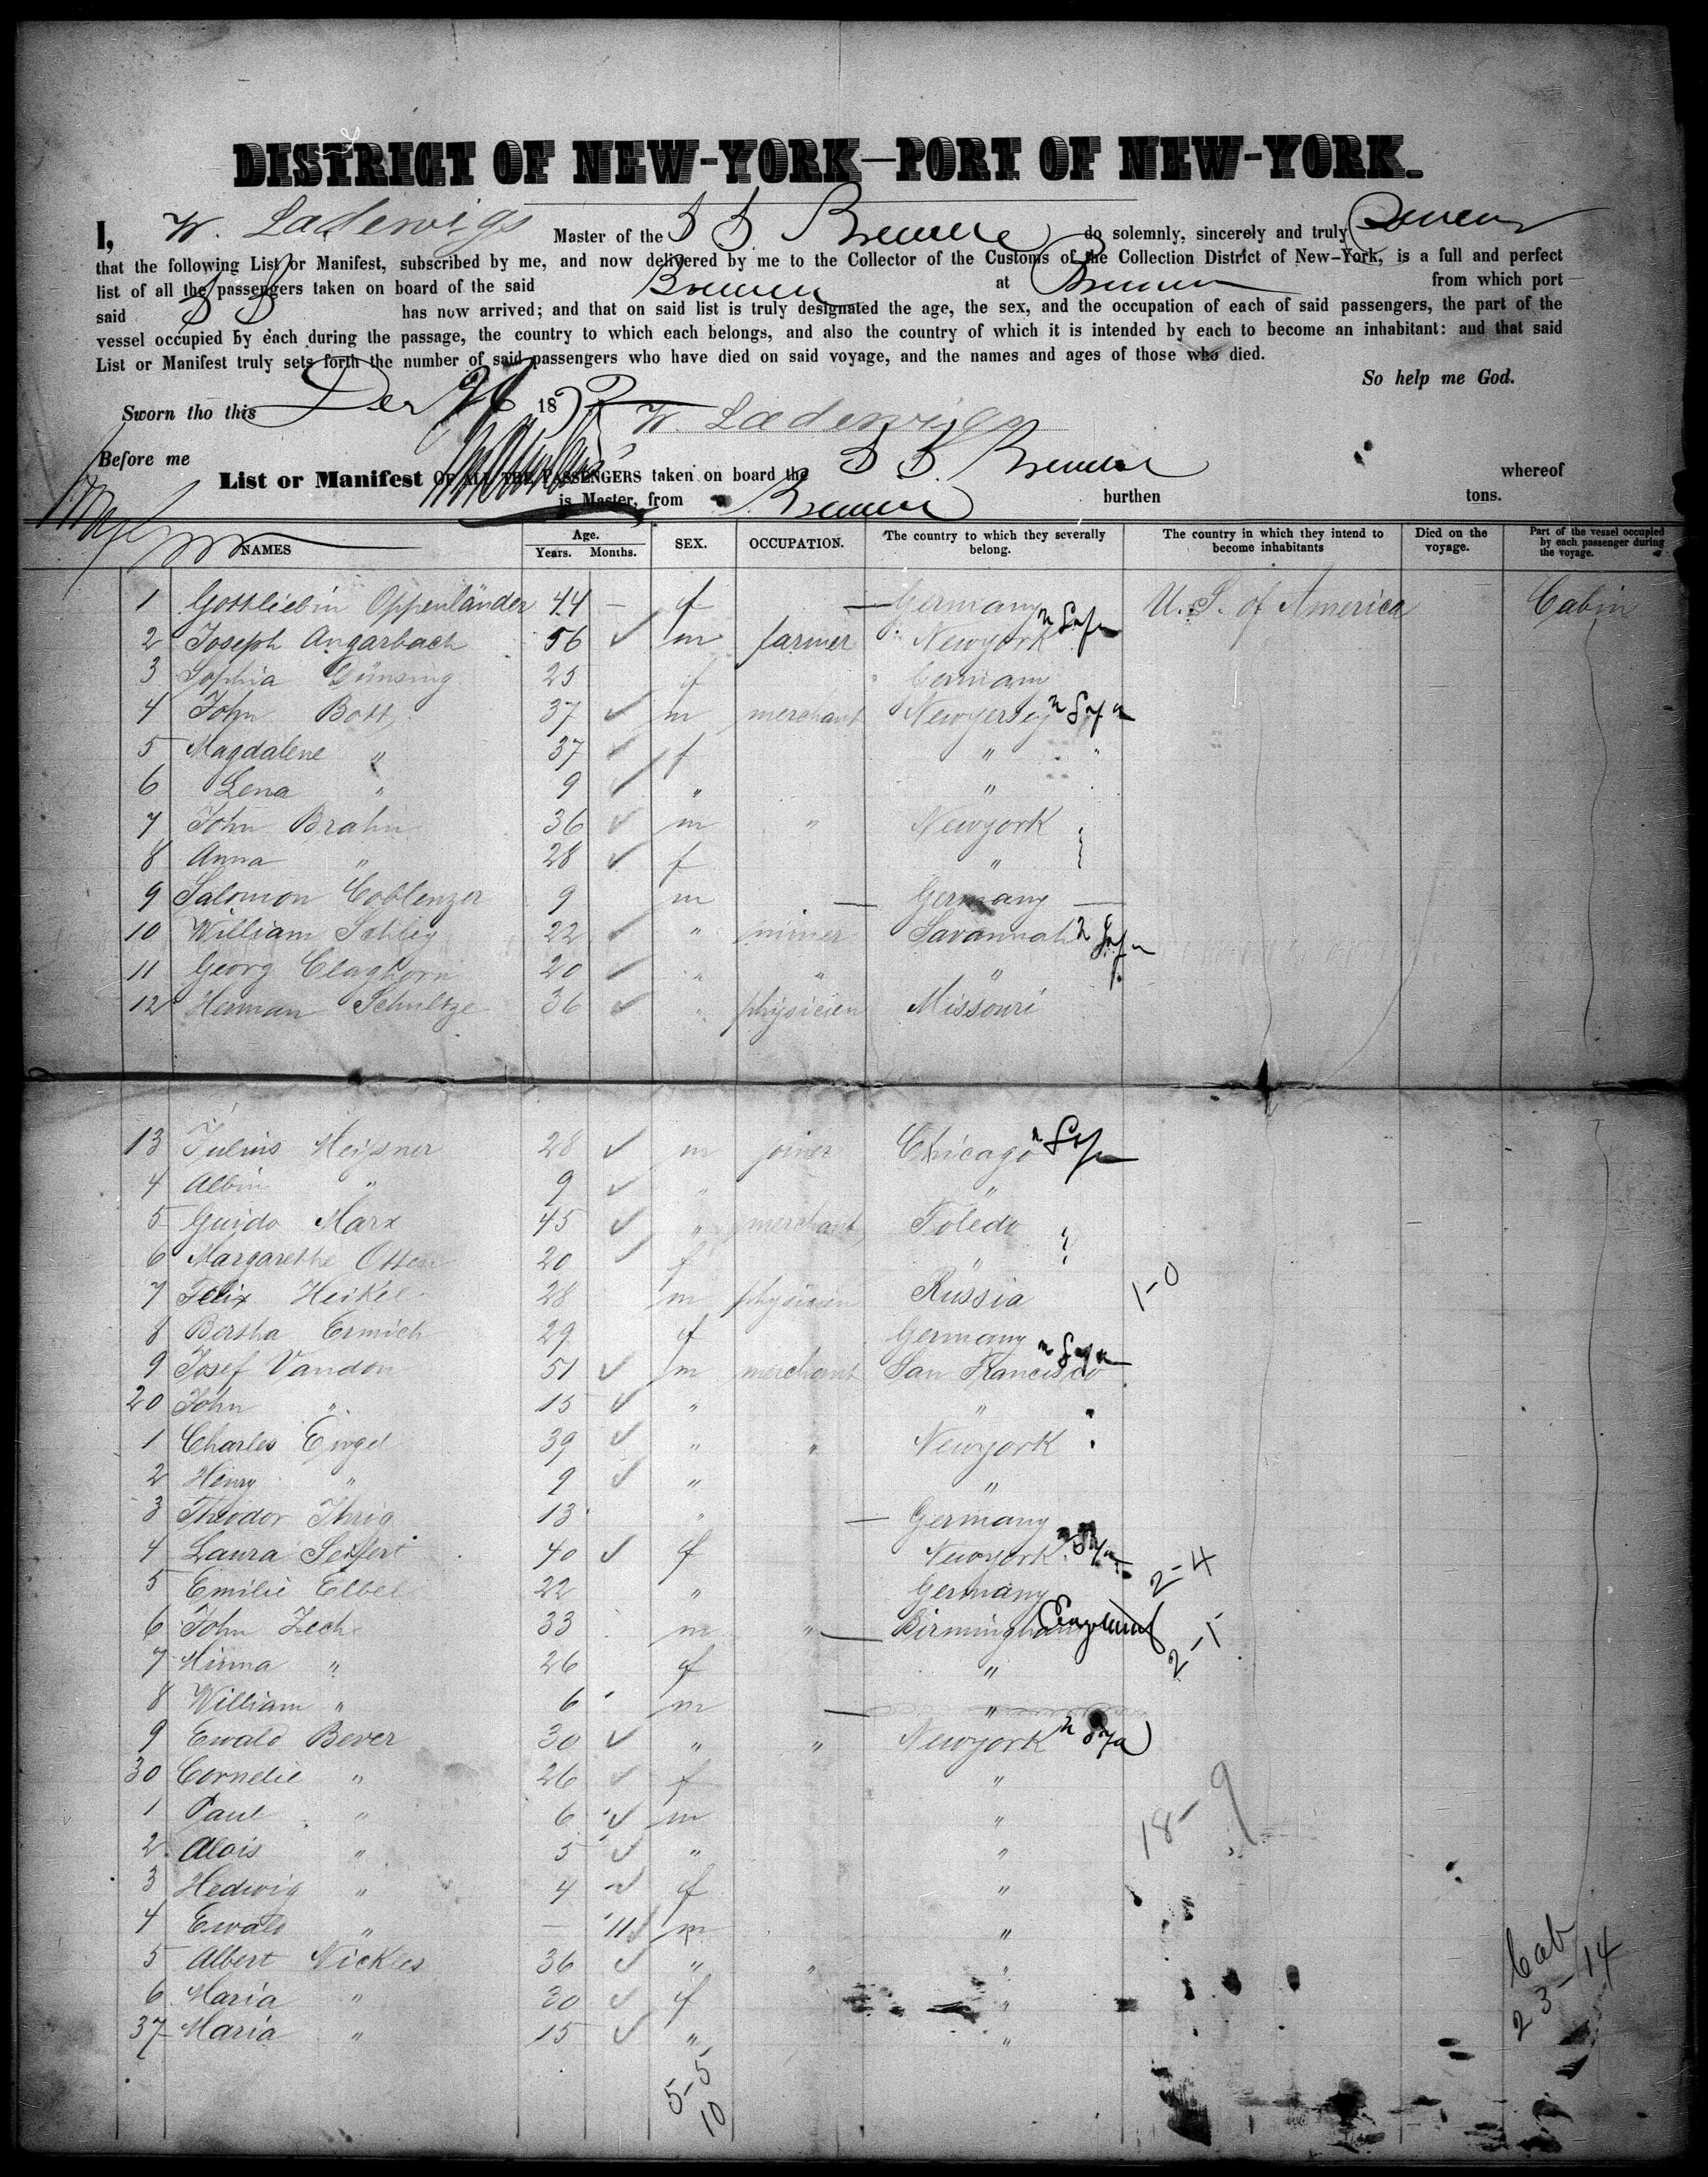 DISTRICT OF NEW-YORK—PORT OF NEW-YORK.
I, W. Ladewigs Master of the S S Bremen do solemnly, sincerely and truly swear
that the following List or Manifest, subscribed by me, and now delivered by me to the Collector of the Customs of the Collection District of New-York, is a full and perfect
list of all the passengers taken on board of the said Bremen at Bremen from which port
said S S has now arrived; and that on said list is truly designated the age, the sex, and the occupation of each of said passengers, the part of the
vessel occupied by each during the passage, the country to which each belongs, and also the country of which it is intended by each to become an inhabitant: and that said
List or Manifest truly sets forth the number of said passengers who have died on said voyage, and the names and ages of those who died.
So help me God.
Sworn tho this Dec 26 18
W. Ladewigs
Before me
List or Manifest OF ALL THE PASSENGERS taken on board the S S Bremen whereof
is Master, from Bremen burthen tons.
NAMES Age. Years. Months. SEX. OCCUPATION. The country to which they severally belong. The country in which they intend to become inhabitants Died on the voyage. Part of the vessel occupied by each passenger during the voyage.
1 Gottliebin Oppenländer 44 — f — Germany U. S. of America Cabin
2 Joseph Angarbach 56 ✓ m farmer Newyork
3 Sophia Günsing 25 f Germany
4 John Bott 37 ✓ m merchant Newyersey
5 Magdalene " 37 ✓ f " "
6 Lena " 9 ✓ " "
7 John Brahn 36 ✓ m " Newyork
8 Anna " 28 ✓ f "
9 Salomon Coblenzer 9 m — Germany —
10 William Schley 22 ✓ " miner Savannah
11 Georg Claghorn 20 ✓ " " "
12 Herman Schultze 36 ✓ " physicien Missouri
13 Julius Meißner 28 ✓ m joiner Chicago
4 Albin " 9 ✓ " "
5 Guido Marx 45 ✓ " merchant Toledo
6 Margarethe Otten 20 ✓ f "
7 Felix Heikel 28 m physicien Russia 1-0
8 Bertha Ermich 29 f Germany
9 Josef Vandon 51 ✓ m merchant San Francisco
20 John " 15 ✓ " " "
1 Charles Engel 39 ✓ " " Newyork
2 Henry " 9 ✓ " "
3 Theodor Ihrig 13 " — Germany
4 Laura Seifert 40 ✓ f Newyork
5 Emilie Elbel 22 " Germany 2-4
6 John Zech 33 m " — Birmingham England
7 Minna " 26 f " 2-1
8 William " 6 m — "
9 Ewald Bever 30 ✓ " " Newyork
30 Cornelie " 26 ✓ f "
1 Paul " 6 ✓ m "
2 Alois " 5 ✓ " "
3 Hedwig " 4 ✓ f " 18-9
4 Ewald " — 11 ✓ m "
5 Albert Nickles 36 ✓ " " "
6 Maria " 30 ✓ f "
37 Maria " 15 ✓ " "
Cab
23-14
5-5
10